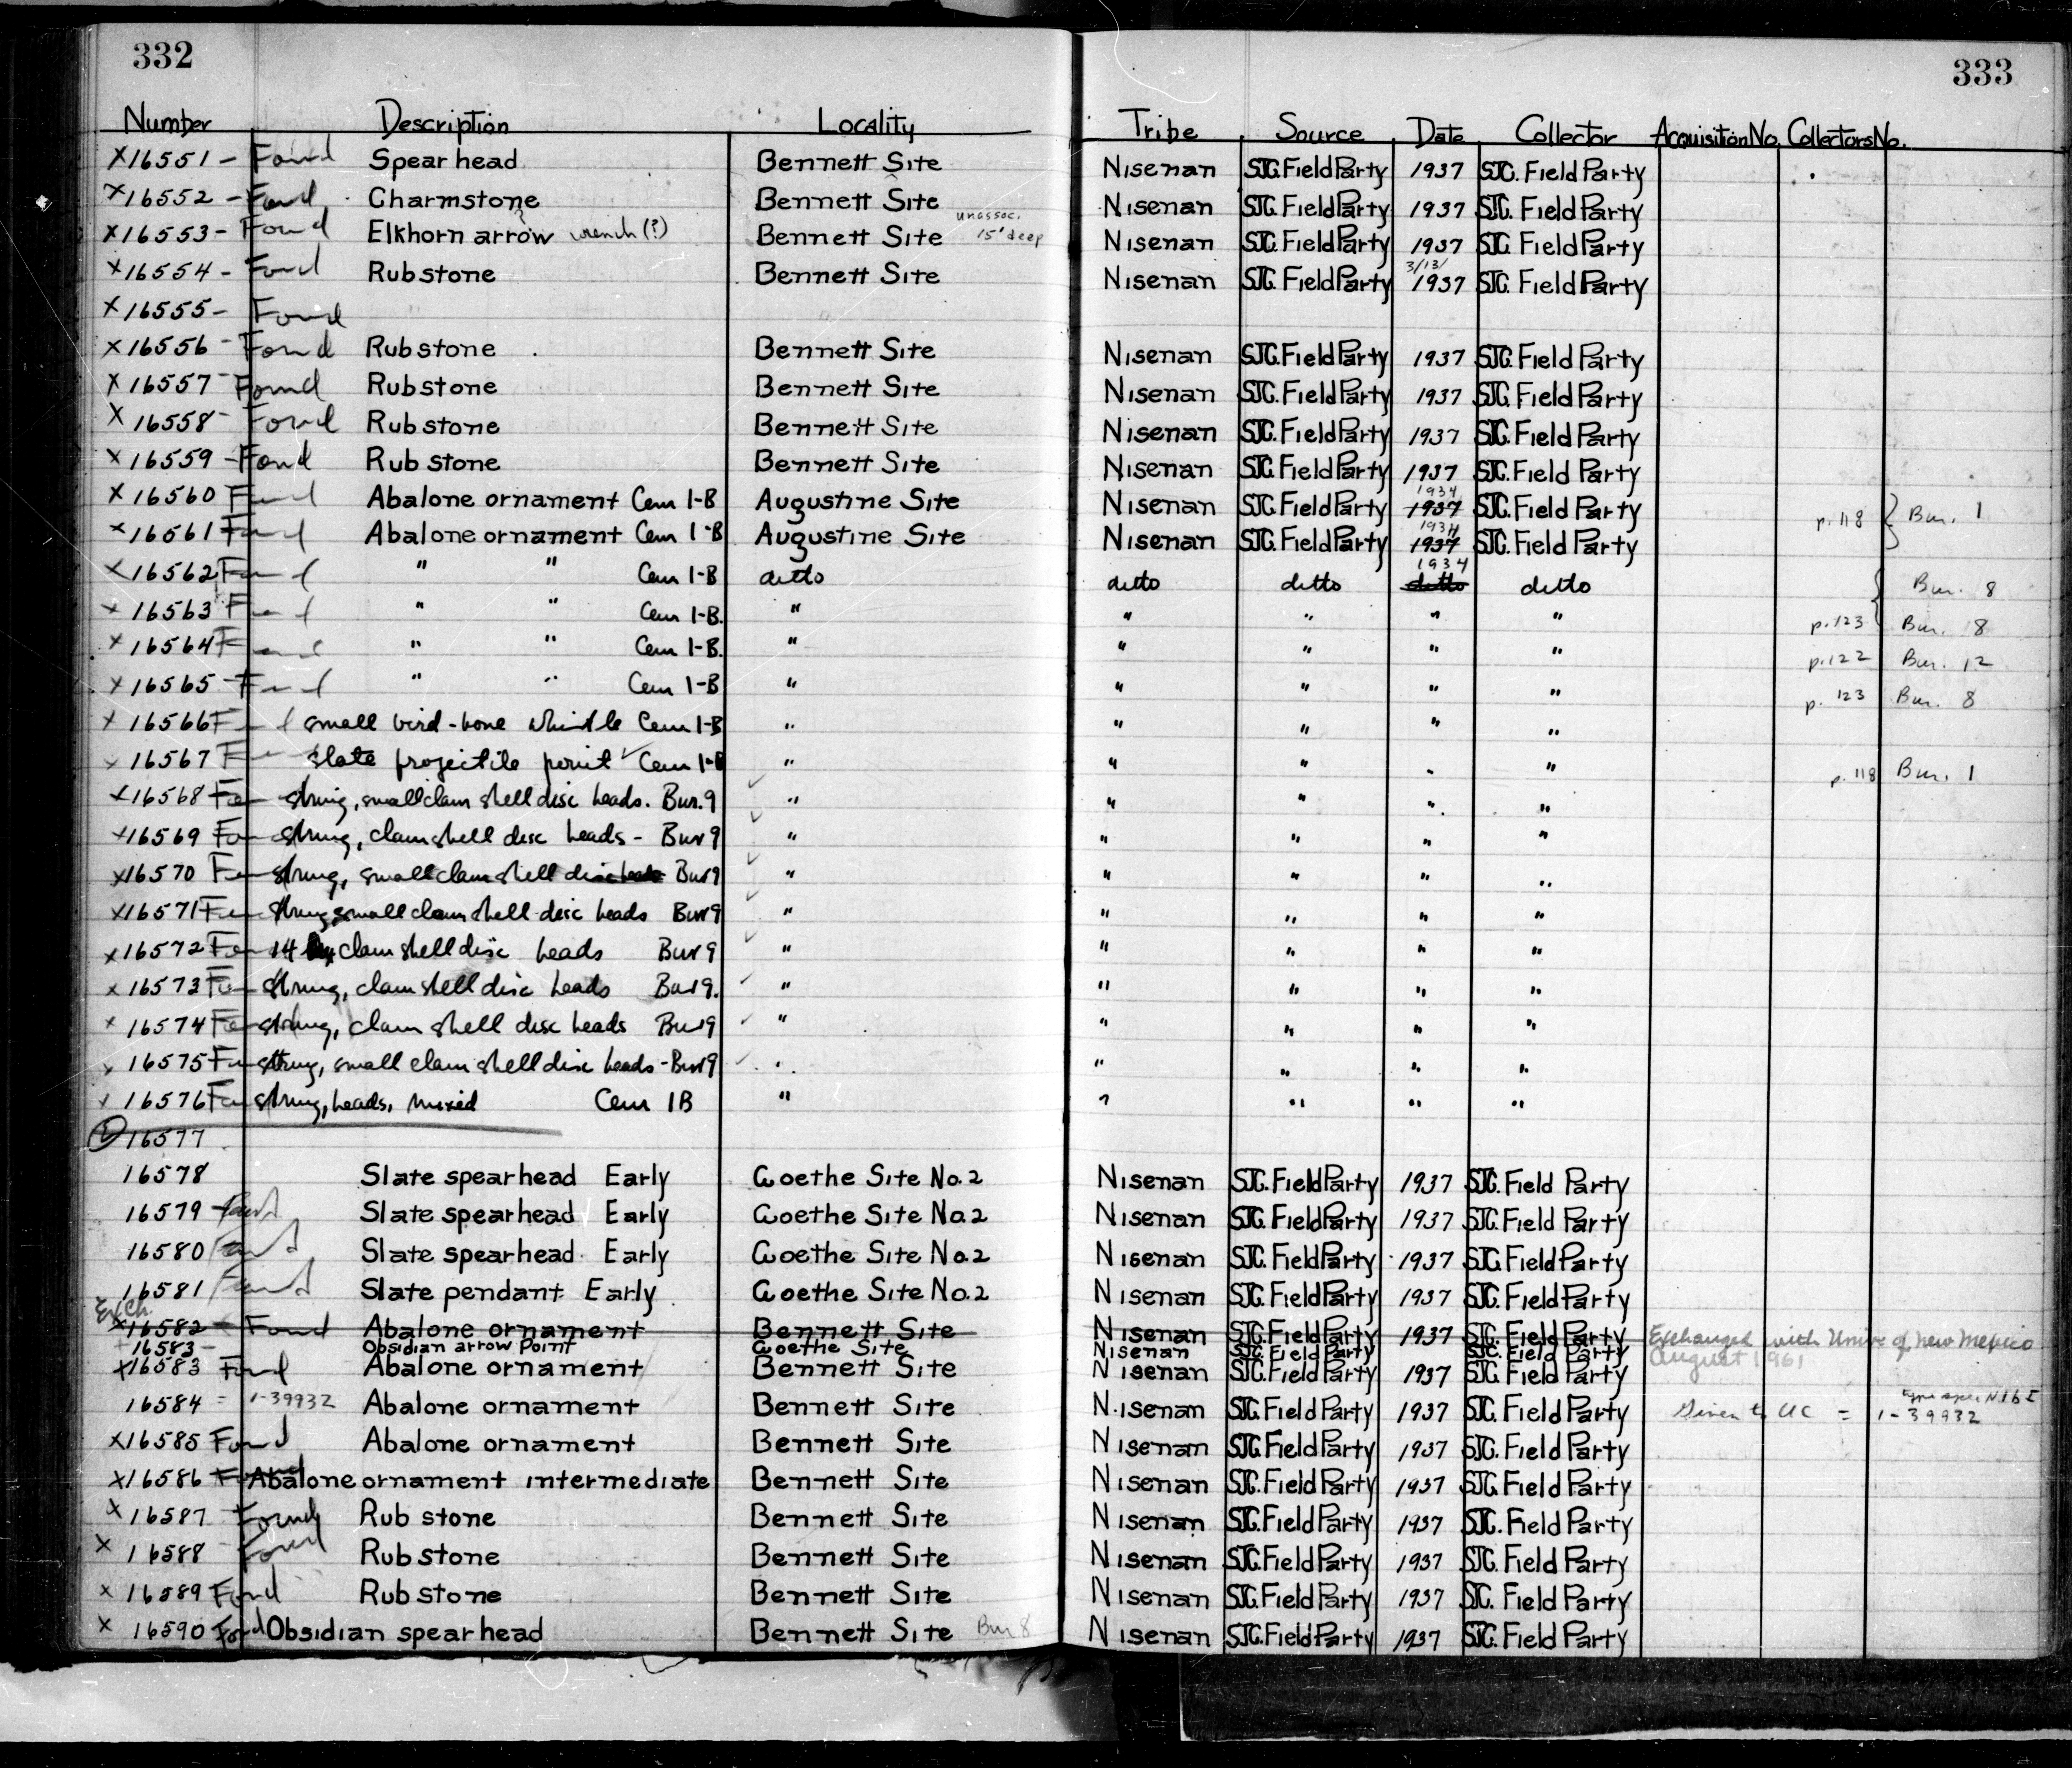 332
333
Number Description Locality Tribe Source Date Collector Acquisition No. Collectors No.
X16551 - Found Spear head Bennett Site Nisenan SJC. Field Party 1937 SJC. Field Party
X16552 - Found Charmstone Bennett Site Nisenan SJC. Field Party 1937 SJC. Field Party
X16553 - Found Elkhorn arrow wrench (?) Bennett Site unassoc. 15' deep Nisenan SJC. Field Party 1937 SJC. Field Party
X16554 - Found Rubstone Bennett Site Nisenan SJC. Field Party 3/13/ 1937 SJC. Field Party
X16555 - Found
X16556 - Found Rubstone Bennett Site Nisenan SJC. Field Party 1937 SJC. Field Party
X16557 - Found Rubstone Bennett Site Nisenan SJC. Field Party 1937 SJC. Field Party
X16558 - Found Rubstone Bennett Site Nisenan SJC. Field Party 1937 SJC. Field Party
X16559 - Found Rubstone Bennett Site Nisenan SJC. Field Party 1937 SJC. Field Party
X16560 Found Abalone ornament Cem 1-B Augustine Site Nisenan SJC. Field Party 1934 1937 SJC. Field Party p. 118 { Bur. 1
X16561 Found Abalone ornament Cem 1-B Augustine Site Nisenan SJC. Field Party 1934 1937 SJC. Field Party
X16562 Found " " Cem 1-B ditto ditto ditto 1934 ditto ditto { Bur. 8
X16563 Found " " Cem 1-B. " " " " " p. 123 Bur. 8
X16564 Found " " Cem 1-B. " " " " " p. 122 Bur. 12
X16565 - Found " " Cem 1-B " " " " " p. 123 Bur. 8
X16566 Found small bird-bone whistle Cem 1-B " " " " "
X16567 Foun slate projectile point ✓ Cem 1-B " " " " " p. 118 Bur. 1
X16568 Foun string, small clam shell disc beads. Bur. 9 ✓ " " " " "
X16569 Foun string, clam shell disc beads - Bur 9 ✓ " " " " "
X16570 Foun string, small clam shell disc beads Bur 9 ✓ " " " " "
X16571 Foun string, small clam shell disc beads Bur 9 ✓ " " " " "
X16572 Foun 14 clam shell disc beads Bur 9 ✓ " " " " "
X16573 Foun string, clam shell disc beads Bur 9. ✓ " " " " "
X16574 Foun string, clam shell disc beads Bur 9 ✓ " " " " "
X16575 Foun string, small clam shell disc beads - Bur 9 ✓ " " " " "
X16576 Foun string, beads, mixed Cem 1B " " " " "
16577
16578 Slate spearhead Early Goethe Site No. 2 Nisenan SJC. Field Party 1937 SJC. Field Party
16579 - Found Slate spearhead Early Goethe Site No. 2 Nisenan SJC. Field Party 1937 SJC. Field Party
16580 Found Slate spearhead Early Goethe Site No. 2 Nisenan SJC. Field Party 1937 SJC. Field Party
16581 Found Slate pendant Early Goethe Site No. 2 Nisenan SJC. Field Party 1937 SJC. Field Party
Exch.
X16582 - Found Abalone ornament Bennett Site Nisenan SJC. Field Party 1937 SJC. Field Party Exchanged with Univ. of New Mexico
16583 - Obsidian arrow Point Goethe Site Nisenan SJC. Field Party SJC. Field Party August 1961
X16583 Found Abalone ornament Bennett Site Nisenan SJC. Field Party 1937 SJC. Field Party
16584 = 1-39932 Abalone ornament Bennett Site Nisenan SJC. Field Party 1937 SJC. Field Party Given to UC = 1-39932
X16585 Found Abalone ornament Bennett Site Nisenan SJC. Field Party 1937 SJC. Field Party
X16586 Found Abalone ornament intermediate Bennett Site Nisenan SJC. Field Party 1937 SJC. Field Party
X16587 - Found Rub stone Bennett Site Nisenan SJC. Field Party 1937 SJC. Field Party
X 16588 - Found Rub stone Bennett Site Nisenan SJC. Field Party 1937 SJC. Field Party
X 16589 Found Rub stone Bennett Site Nisenan SJC. Field Party 1937 SJC. Field Party
X 16590 Found Obsidian spearhead Bennett Site Bur 8 Nisenan SJC. Field Party 1937 SJC. Field Party